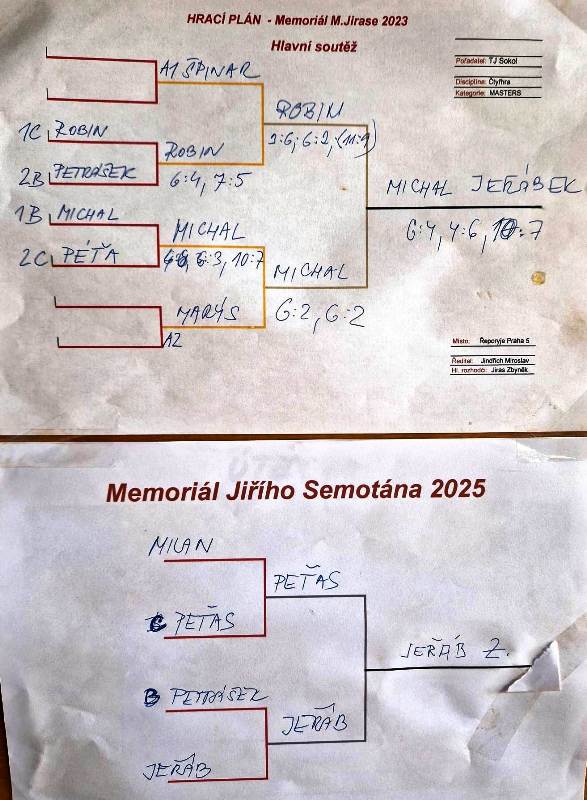 HRACÍ PLÁN - Memoriál M.Jirase 2023
Hlavní soutěž
Pořadatel: TJ Sokol
Disciplína: Čtyřhra
Kategorie: MASTERS
A1 ŠPINAR
1C ROBIN
ROBIN
2:6, 6:2, (11:9)
ROBIN
6:4, 7:5
2B PETRÁSEK
MICHAL JEŘÁBEK
6:4, 4:6, 10:7
1B MICHAL
MICHAL
6:3, 10:7
2C PÉŤA
MICHAL
6:2, 6:2
MARYS
A2
Místo: Řeporyje Praha 5
Ředitel: Jindřich Miroslav
Hl. rozhodčí: Jiras Zbyněk
Memoriál Jiřího Semotána 2025
MILAN
PEŤAS
C PEŤAS
JEŘÁB Z.
B PETRÁSEK
JEŘÁB
JEŘÁB